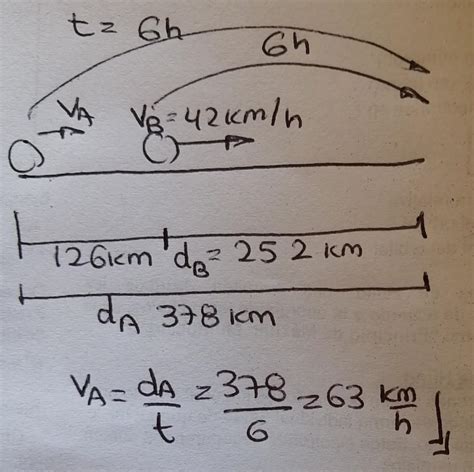 t = 6h
6h
VA
VB = 42 km/h
126 km dB = 252 km
dA 378 km
VA = dA/t = 378/6 = 63 km/h